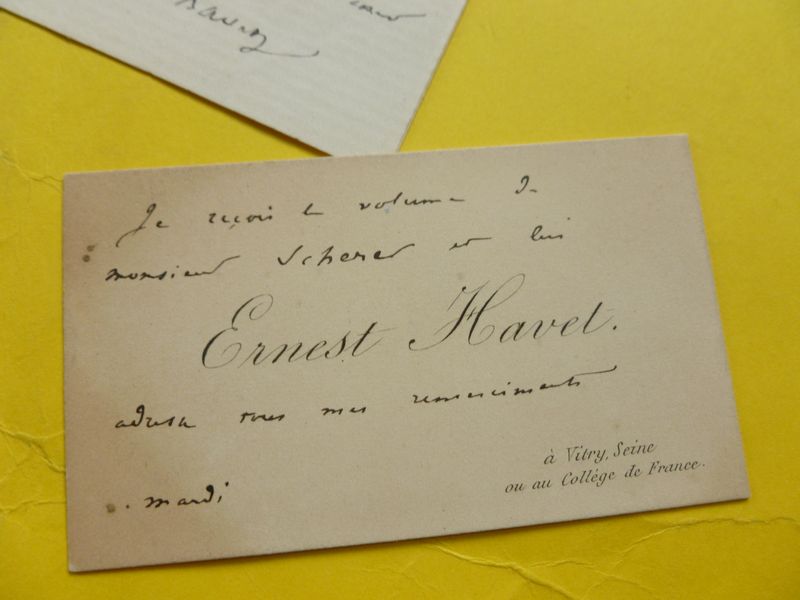 Je reçois le volume de
monsieur Scherer et lui
Ernest Havet.
adresse tous mes remerciments
à Vitry, Seine
ou au Collége de France.
mardi